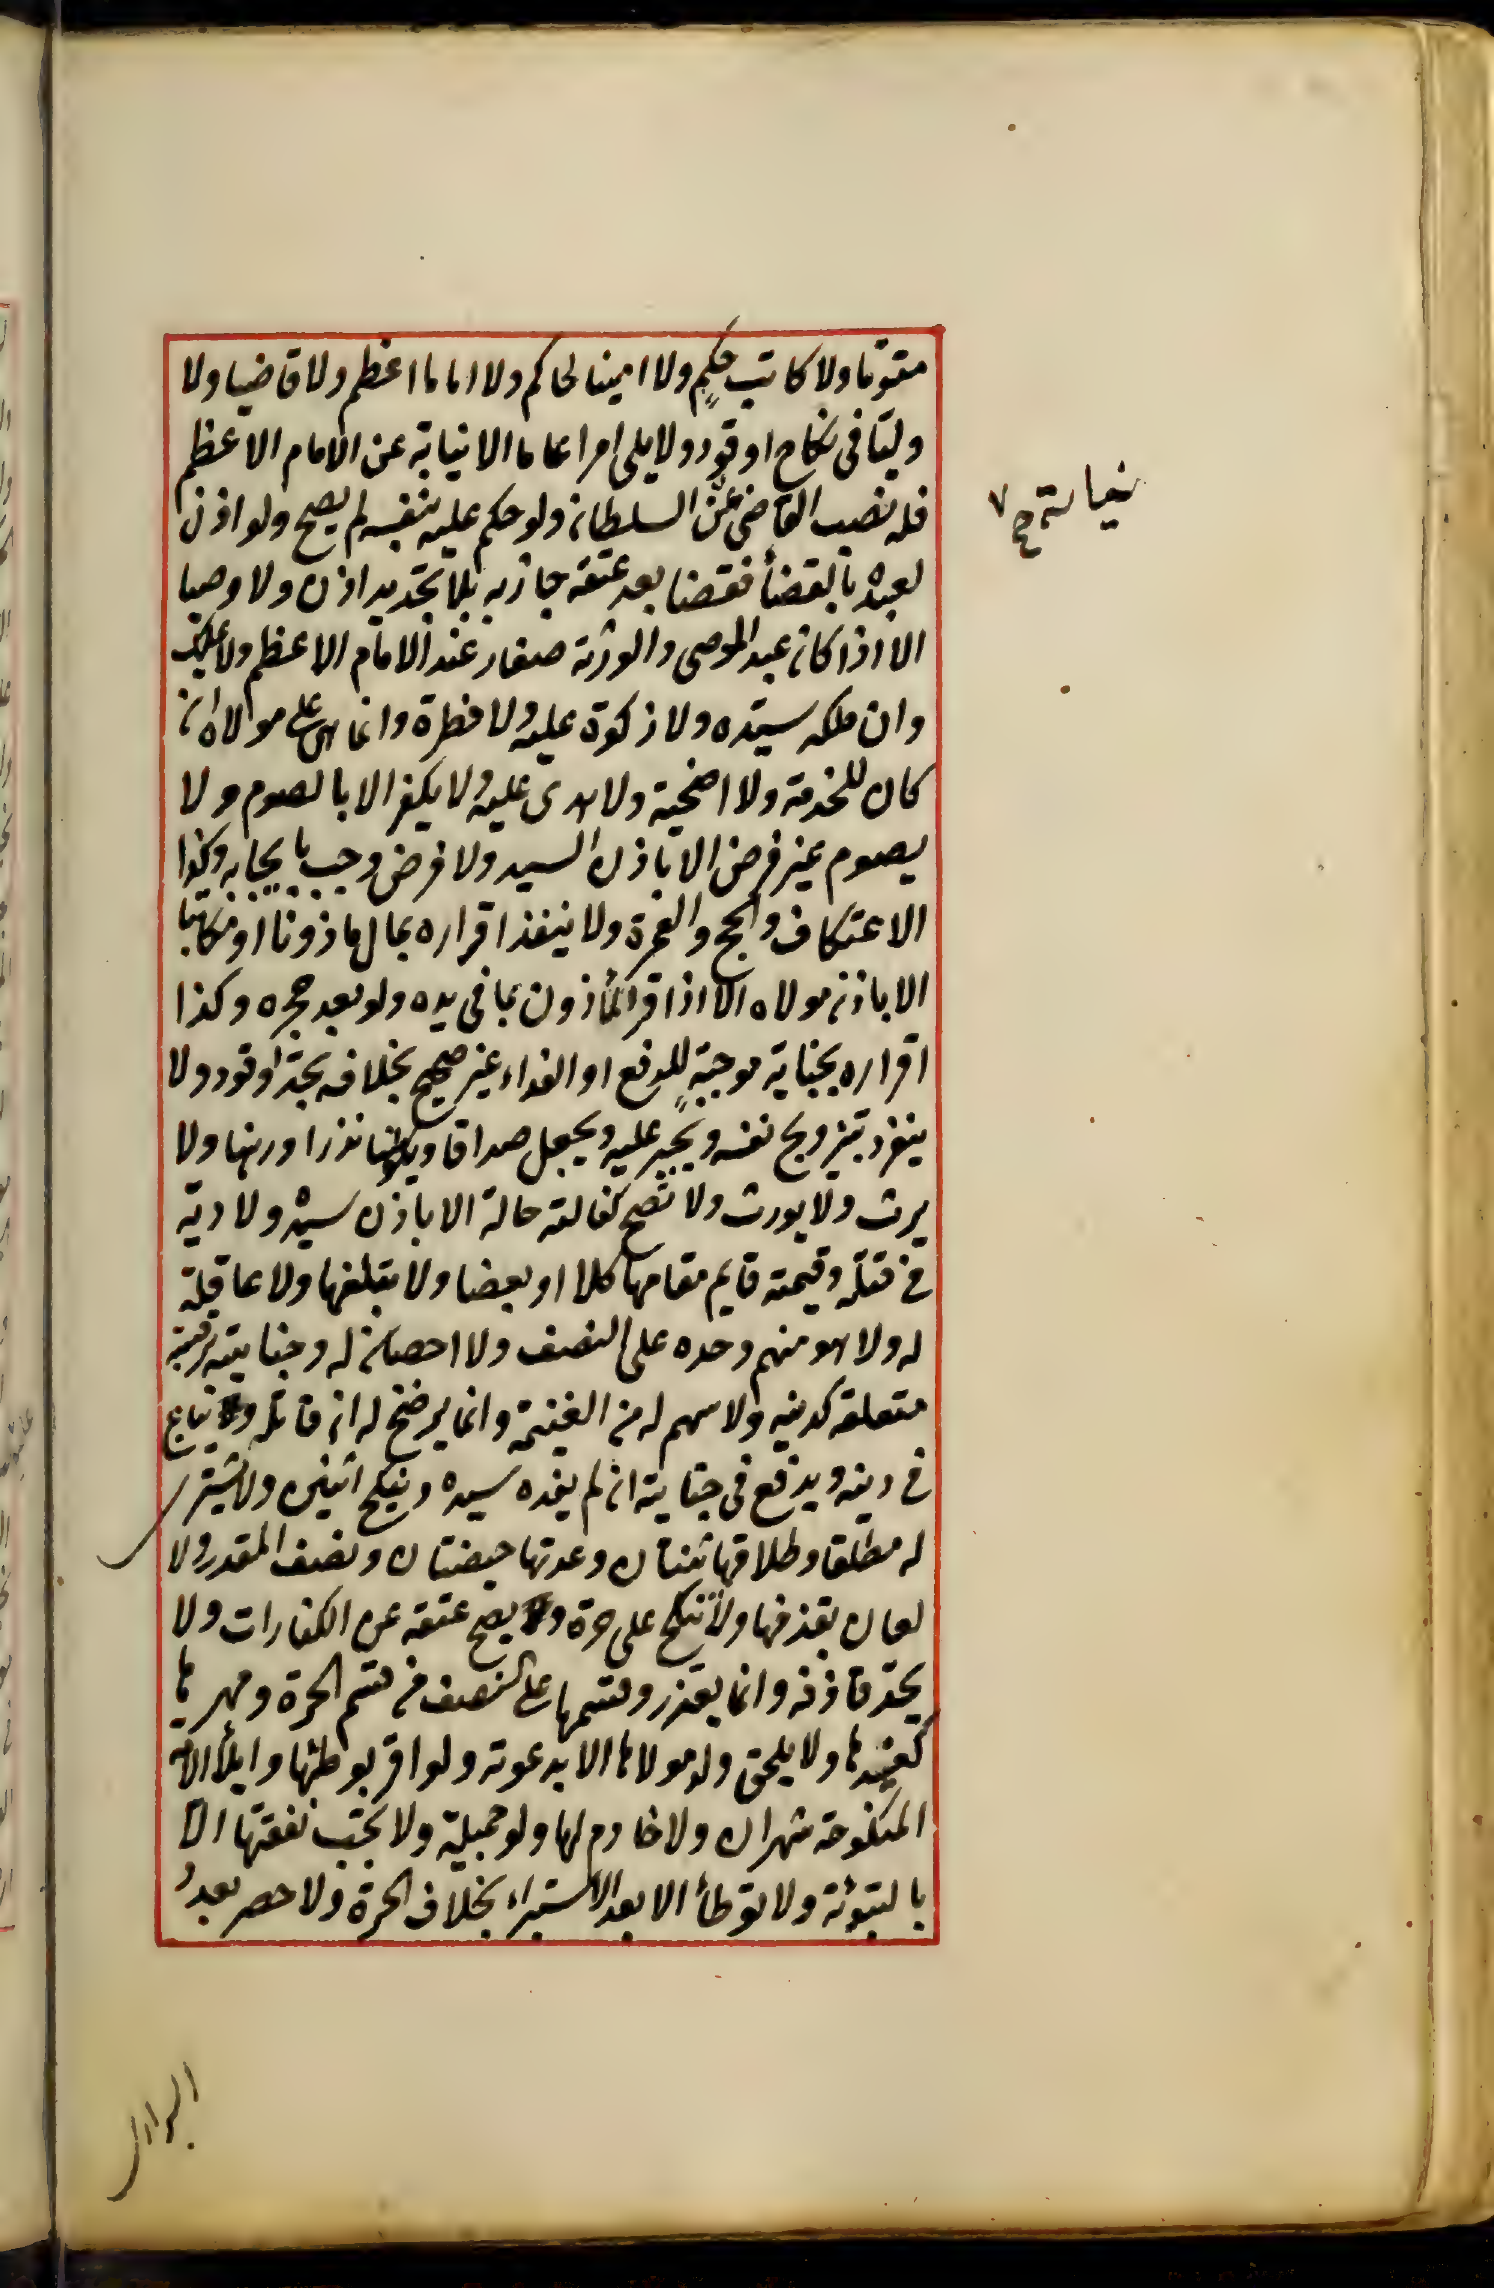 مقوما ولا كاتب حكم ولا امينا لحاكم ولا اماما اعظم ولا قاضيا ولا
وليا فى نكاح او قود ولا يلى امرا عاما الا نيابة عن الامام الاعظم
فله نصب القاضى عن السلطان ولو حكم عليه بنفسه لم يصح ولو اذن
لعبده بالقضأ فقضا بعد عتقه جاز به بلا تجديد اذن ولا وصيا
الا اذا كان عبد الموصى والورثة صغار عند الامام الاعظم ولا يملك
وان ملكه سيّده ولا زكوة عليه ولا فطرة وانما هى على مولاه ان
كان للخدمة ولا اضحية ولا هدى عليه ولا يكفر الا بالصوم ولا
يصوم غير فرض الا باذن السيد ولا فرض وجب بايجابه وكذا
الاعتكاف والحج والعمرة ولا ينفذ اقراره بمال ماذونا او مكاتبا
الا باذن مولاه الا اذا اقر المأذون بما فى يده ولو بعد حجره وكذا
اقراره بجناية موجبة للدفع او الفداء غير صحيح بخلافه بحد او قود ولا
ينفرد بتزويج نفسه ويجبر عليه ويجعل صداقا ويكون نذرا ورهنا ولا
يرث ولا يورث ولا تصح كفالته حالة الا باذن سيده ولا دية
فى قتله وقيمته قايم مقامها كلا او بعضا ولا يبلغها ولا عاقلة
له ولا هو منهم وحده على النصف ولا احصان له وجنايته برقبته
متعلقة كدينه ولا سهم له من الغنيمة وانما يرضخ له ان قاتل ويباع
فى دينه ويدفع فى جناية ان لم يفده سيده وينكح اثنين ولا تسرى
له مطلقا وطلاقها ثنتان وعدتها حيضتان ونصف المقدر ولا
لعان بقذفها ولا تنكح على حرة ويصح عتقه عن الكفارات ولا
يحد قاذفه وانما يعزر وقسمها على النصف من قسم الحرة ومهرها
كغيرها ولا يلحق ولد مولاها الا بدعوته ولو اقر بوطئها وايلأ الامة
المنكوحة شهران ولا خادم لها ولو جميلة ولا تجب نفقتها الا
بالتبوئة ولا توطأ الا بعد الاستبراء بخلاف الحرة ولا حصر بعدد
نيابة صح
السرارى